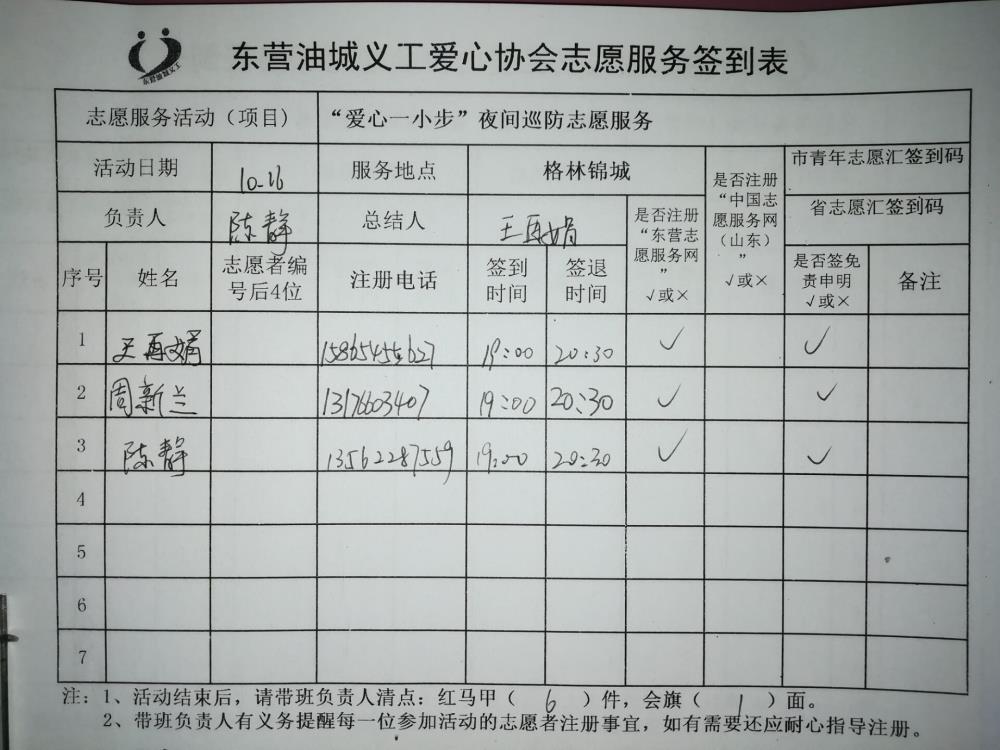 东营油城义工
东营油城义工爱心协会志愿服务签到表
志愿服务活动（项目） “爱心一小步”夜间巡防志愿服务
活动日期 10-16 服务地点 格林锦城 是否注册“中国志愿服务网（山东）” √或× 市青年志愿汇签到码
负责人 陈静 总结人 王再娟 是否注册“东营志愿服务网” √或× 省志愿汇签到码
序号 姓名 志愿者编号后4位 注册电话 签到时间 签退时间 是否签免责申明 √或× 备注
1 王再娟 15865455627 19:00 20:30 √ √
2 周新兰 13176603407 19:00 20:30 √ √
3 陈静 13562287559 19:00 20:30 √ √
4
5
6
7
注：1、活动结束后，请带班负责人清点：红马甲（ 6 ）件，会旗（ 1 ）面。
2、带班负责人有义务提醒每一位参加活动的志愿者注册事宜，如有需要还应耐心指导注册。